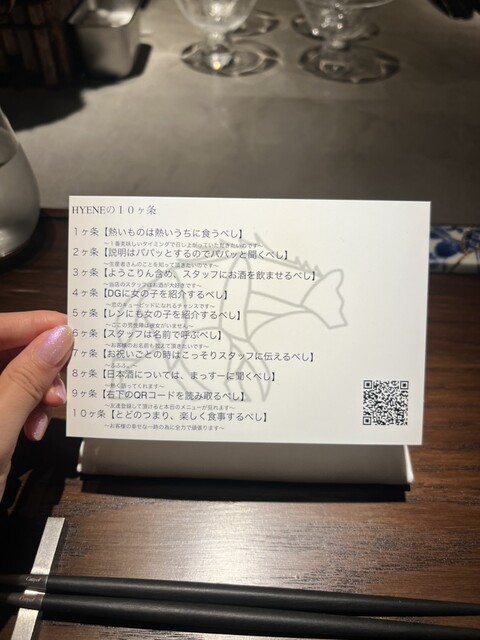 HYENEの10ヶ条
1ヶ条【熱いものは熱いうちに食うべし】
〜1番美味しいタイミングで召し上がっていただきたいのです〜
2ヶ条【説明はパパッとするのでパパッと聞くべし】
〜生産者さんのことを知って頂きたいのです〜
3ヶ条【ようこりん含め、スタッフにお酒を飲ませるべし】
〜当店のスタッフはお酒が大好きです〜
4ヶ条【DGに女の子を紹介するべし】
〜恋のキューピッドになれるチャンスです〜
5ヶ条【レンにも女の子を紹介するべし】
〜ここの男性陣は彼女がいません〜
6ヶ条【スタッフは名前で呼ぶべし】
〜お客様のお名前も教えて頂きたいです〜
7ヶ条【お祝いごとの時はこっそりスタッフに伝えるべし】
8ヶ条【日本酒については、まっすーに聞くべし】
〜熱く語ってくれます〜
9ヶ条【右下のQRコードを読み取るべし】
〜友達登録して頂けると本日のメニューが見れます〜
10ヶ条【とどのつまり、楽しく食事するべし】
〜お客様の幸せな一時の為に全力で頑張ります〜